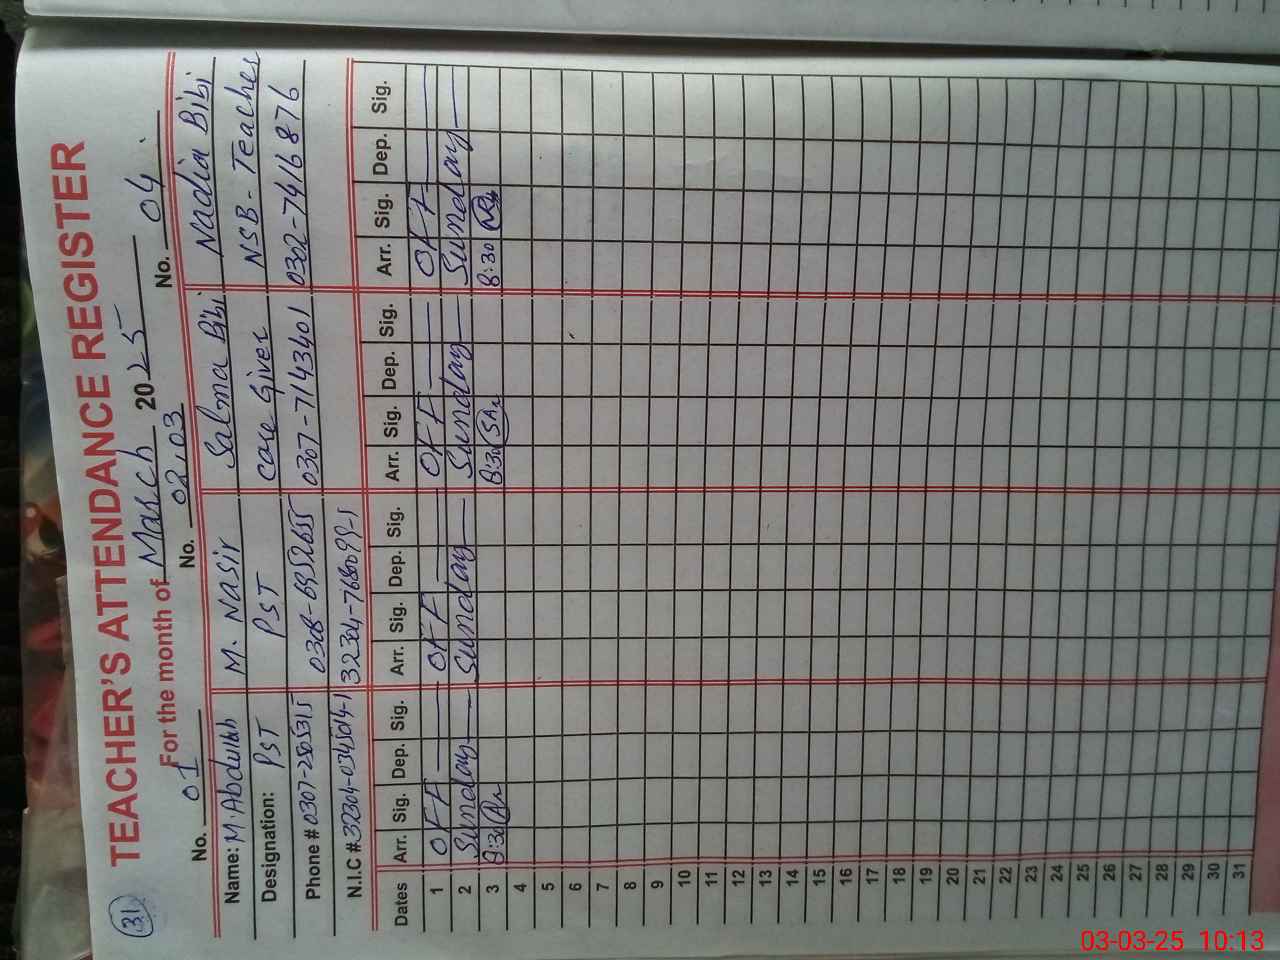 31
TEACHER'S ATTENDANCE REGISTER
For the month of March 2025
No. 01 No. 02,03 No. 04
Name: M. Abdullah M. Nasir Salma Bibi Nadia Bibi
Designation: PST PST Care Giver NSB - Teacher
Phone # 0307-2505315 0308-6952655 0307-7143401 0302-7416876
N.I.C # 32304-0345014-1
Dates Arr. Sig. Dep. Sig. Arr. Sig. Dep. Sig. Arr. Sig. Dep. Sig. Arr. Sig. Dep. Sig.
1 OFF OFF OFF OFF
2 Sunday Sunday Sunday Sunday
3 8:30 8:30 8:30
4
5
6
7
8
9
10
11
12
13
14
15
16
17
18
19
20
21
22
23
24
25
26
27
28
29
30
31
03-03-25 10:13